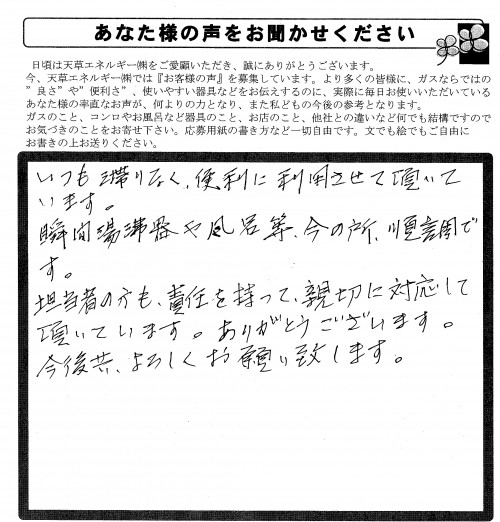 あなた様の声をお聞かせください
日頃は天草エネルギー㈱をご愛顧いただき、誠にありがとうございます。
今、天草エネルギー㈱では『お客様の声』を募集しています。より多くの皆様に、ガスならではの
”良さ”や”便利さ”、使いやすい器具などをお伝えするのに、実際に毎日お使いいただいている
あなた様の率直なお声が、何よりの力となり、また私どもの今後の参考となります。
ガスのこと、コンロやお風呂など器具のこと、お店のこと、他社との違いなど何でも結構ですので
お気づきのことをお寄せ下さい。応募用紙の書き方など一切自由です。文でも絵でもご自由に
お書きの上お送りください。
いつも滞りなく、便利に利用させて頂いて
います。
瞬間湯沸器や風呂等、今の所、順調で
す。
担当者の方も、責任を持って、親切に対応して
頂いています。ありがとうございます。
今後共、よろしくお願い致します。